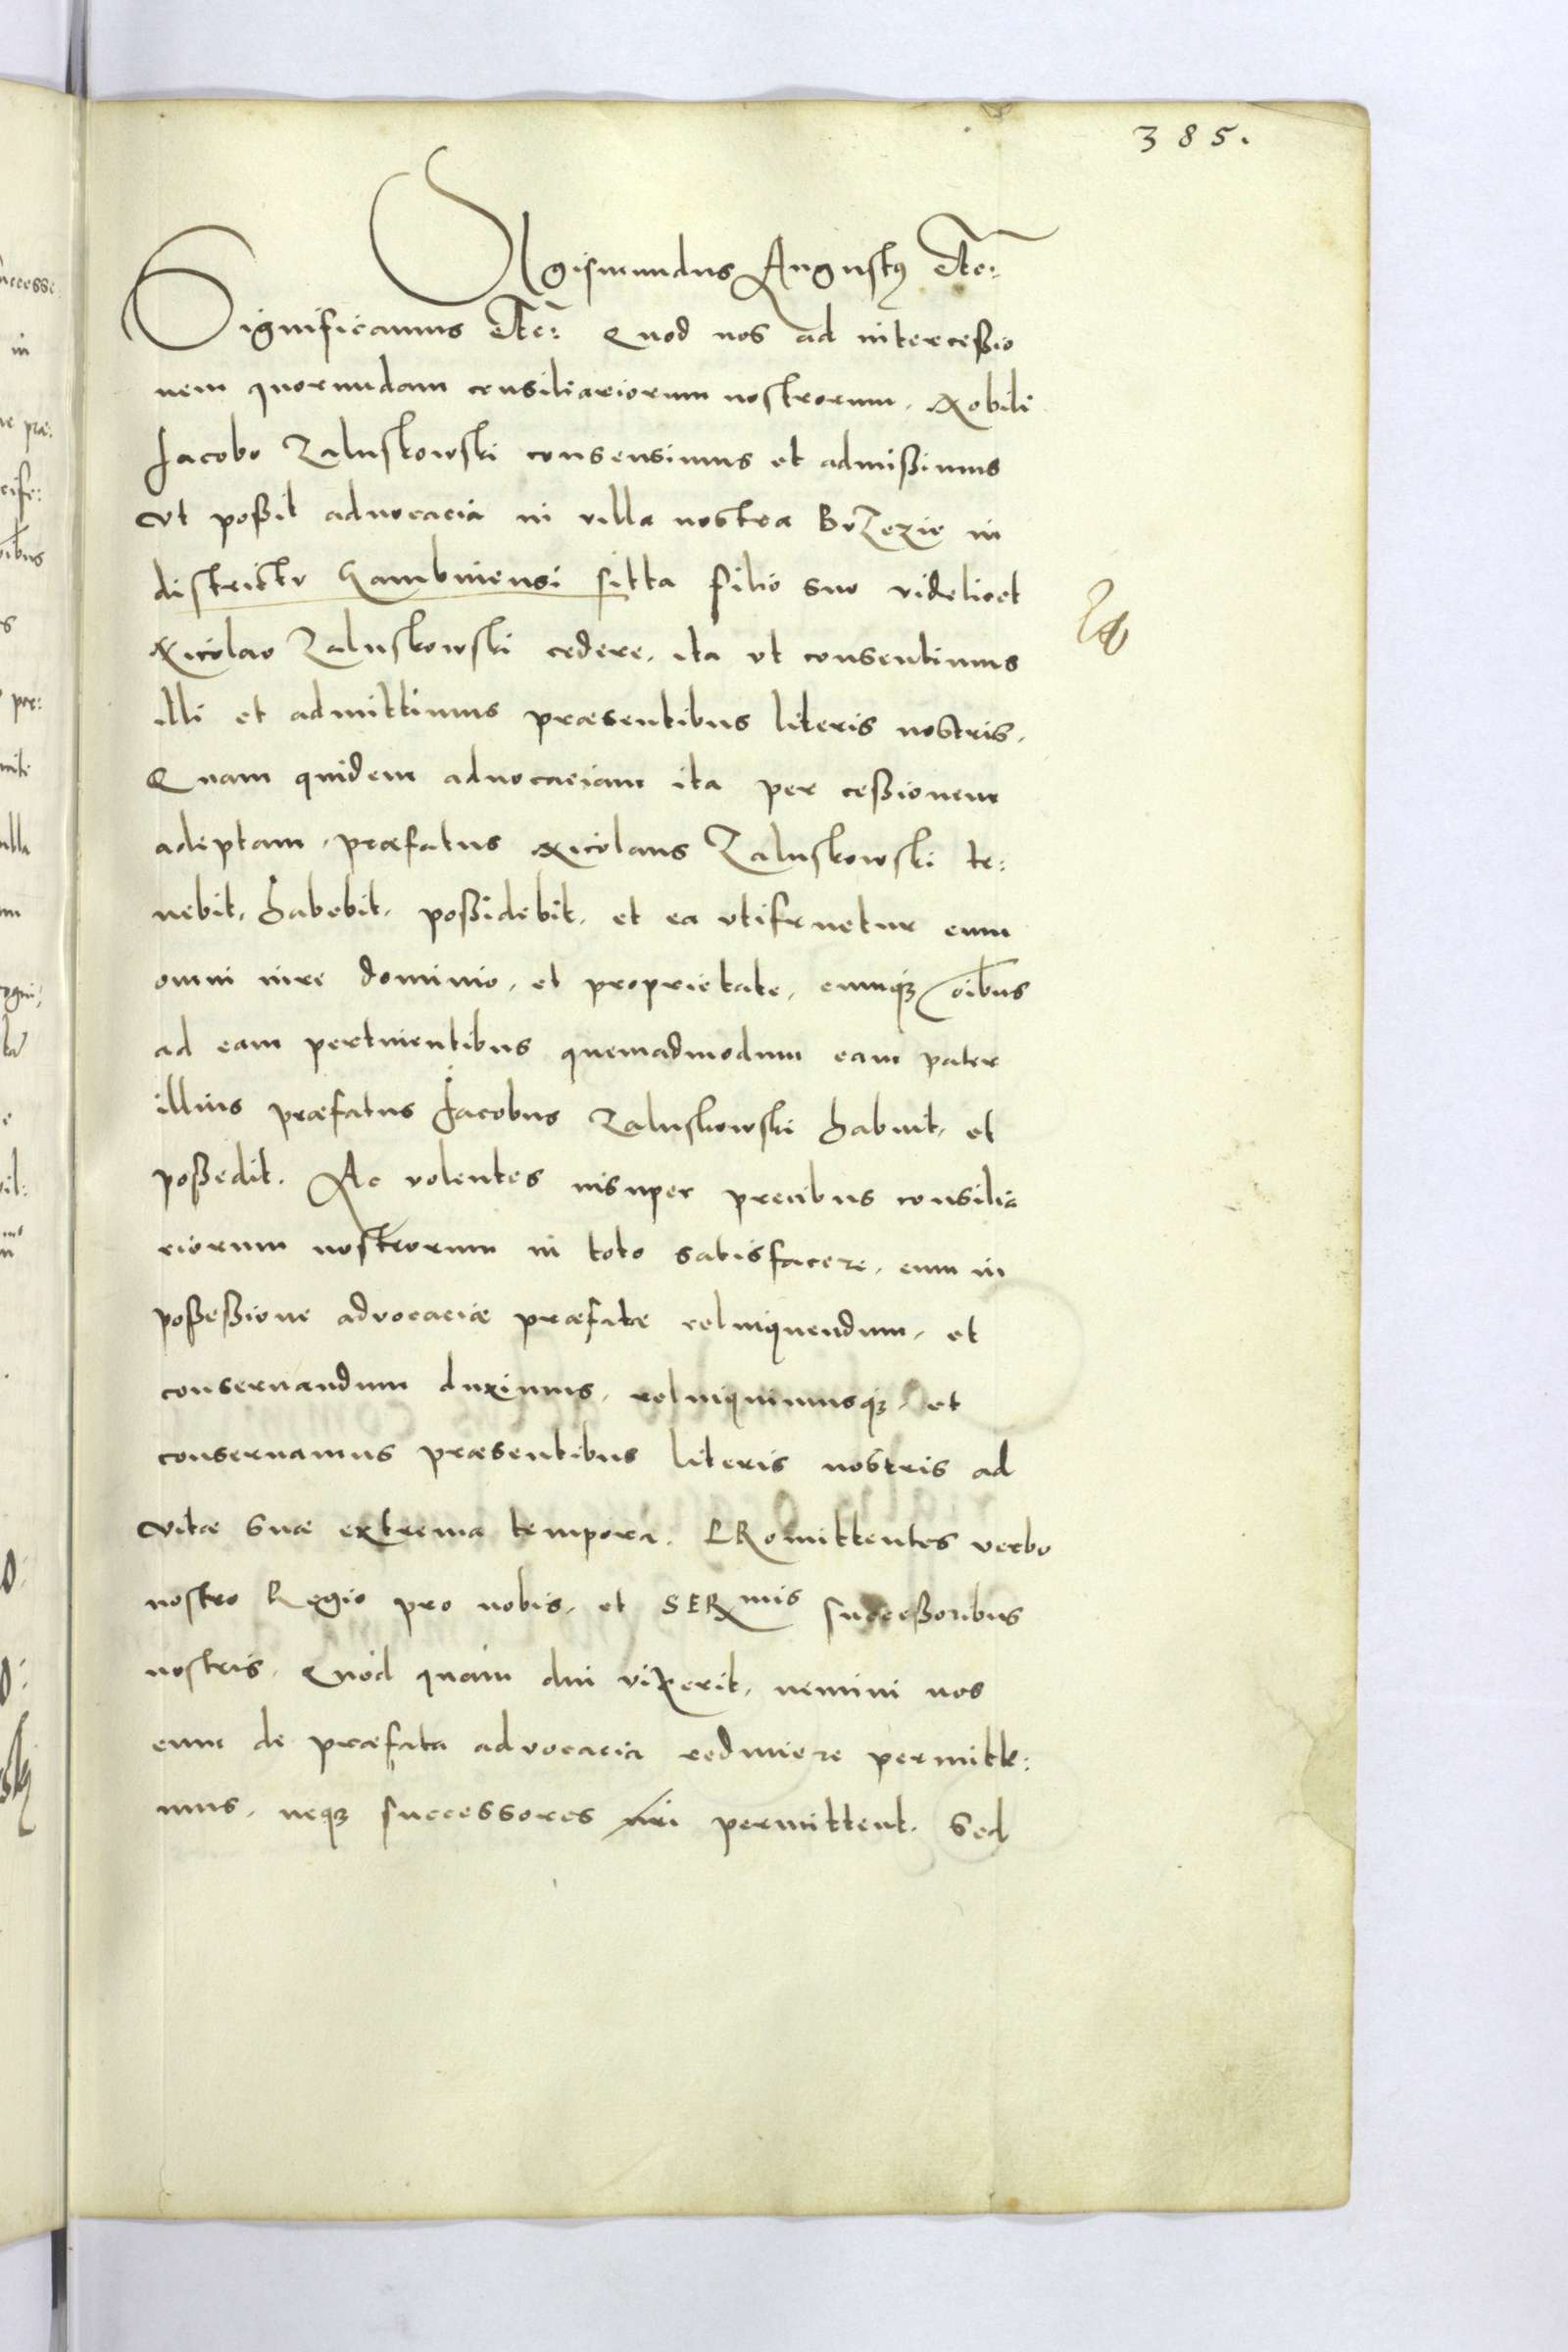 385.
Sigismundus Augustus etc:
Significamus etc: Quod nos ad intercessio
nem quorundam consiliariorum nostrorum, Nobili
Jacobo Zaluskowski consensimus et admissimus
vt possit aduocacia in villa nostra Brzezie in
districtv Gambinensi sitta filio suo videlicet
Nicolao Zaluskowski cedere, ita vt consentimus
illi et admittimus præsentibus literis nostris.
Quam quidem aduocaciam ita per cessionem
adeptam, præfatus Nicolaus Zaluskowski te:
nebit, habebit, possidebit, et ea vtifruetur cum
omni iure dominio, et proprietate, cumq3 oibus
ad eam pertinentibus quemadmodum eam pater
illius præfatus Jacobus Zaluskowski habuit, et
possedit. Ac volentes insuper precibus consilia
riorum nostrorum in toto satisfacere, eum in
possessione advocaciæ præfatæ relinquendum, et
conseruandum duximus, relinquimusq3, et
conseruamus præsentibus literis nostris ad
vitæ suæ extrema tempora. PRomittentes verbo
nostro Regio pro nobis, et SERmis successoribus
nostris, Quod quam diu vixerit, nemini nos
eum de præfata advocacia redimere permitte:
mus, neq3 successores nri permittent. Sed